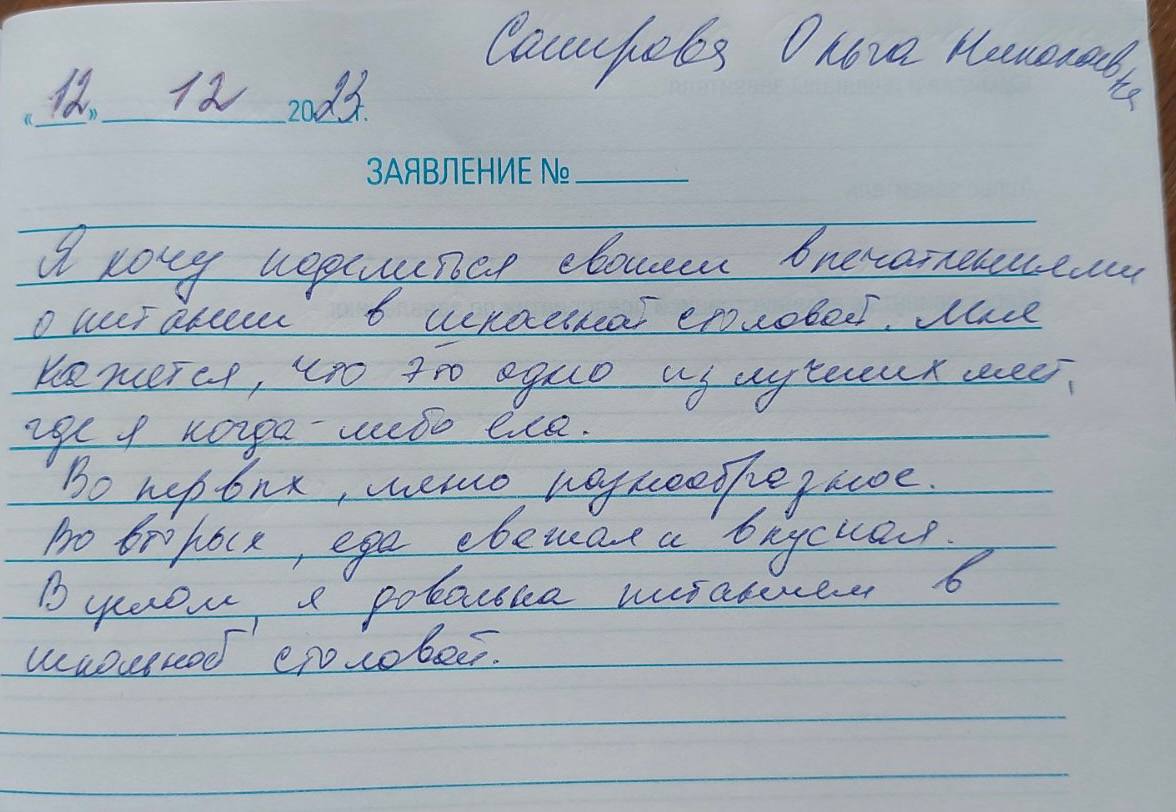 Сатирова Ольга Николаевна
«12» 12 2023г.
ЗАЯВЛЕНИЕ №
Я хочу поделиться своими впечатлениями
о питании в школьной столовой. Мне
кажется, что это одно из лучших мест,
где я когда-либо ела.
Во первых, меню разнообразное.
Во вторых, еда свежая и вкусная.
В целом, я довольна питанием в
школьной столовой.